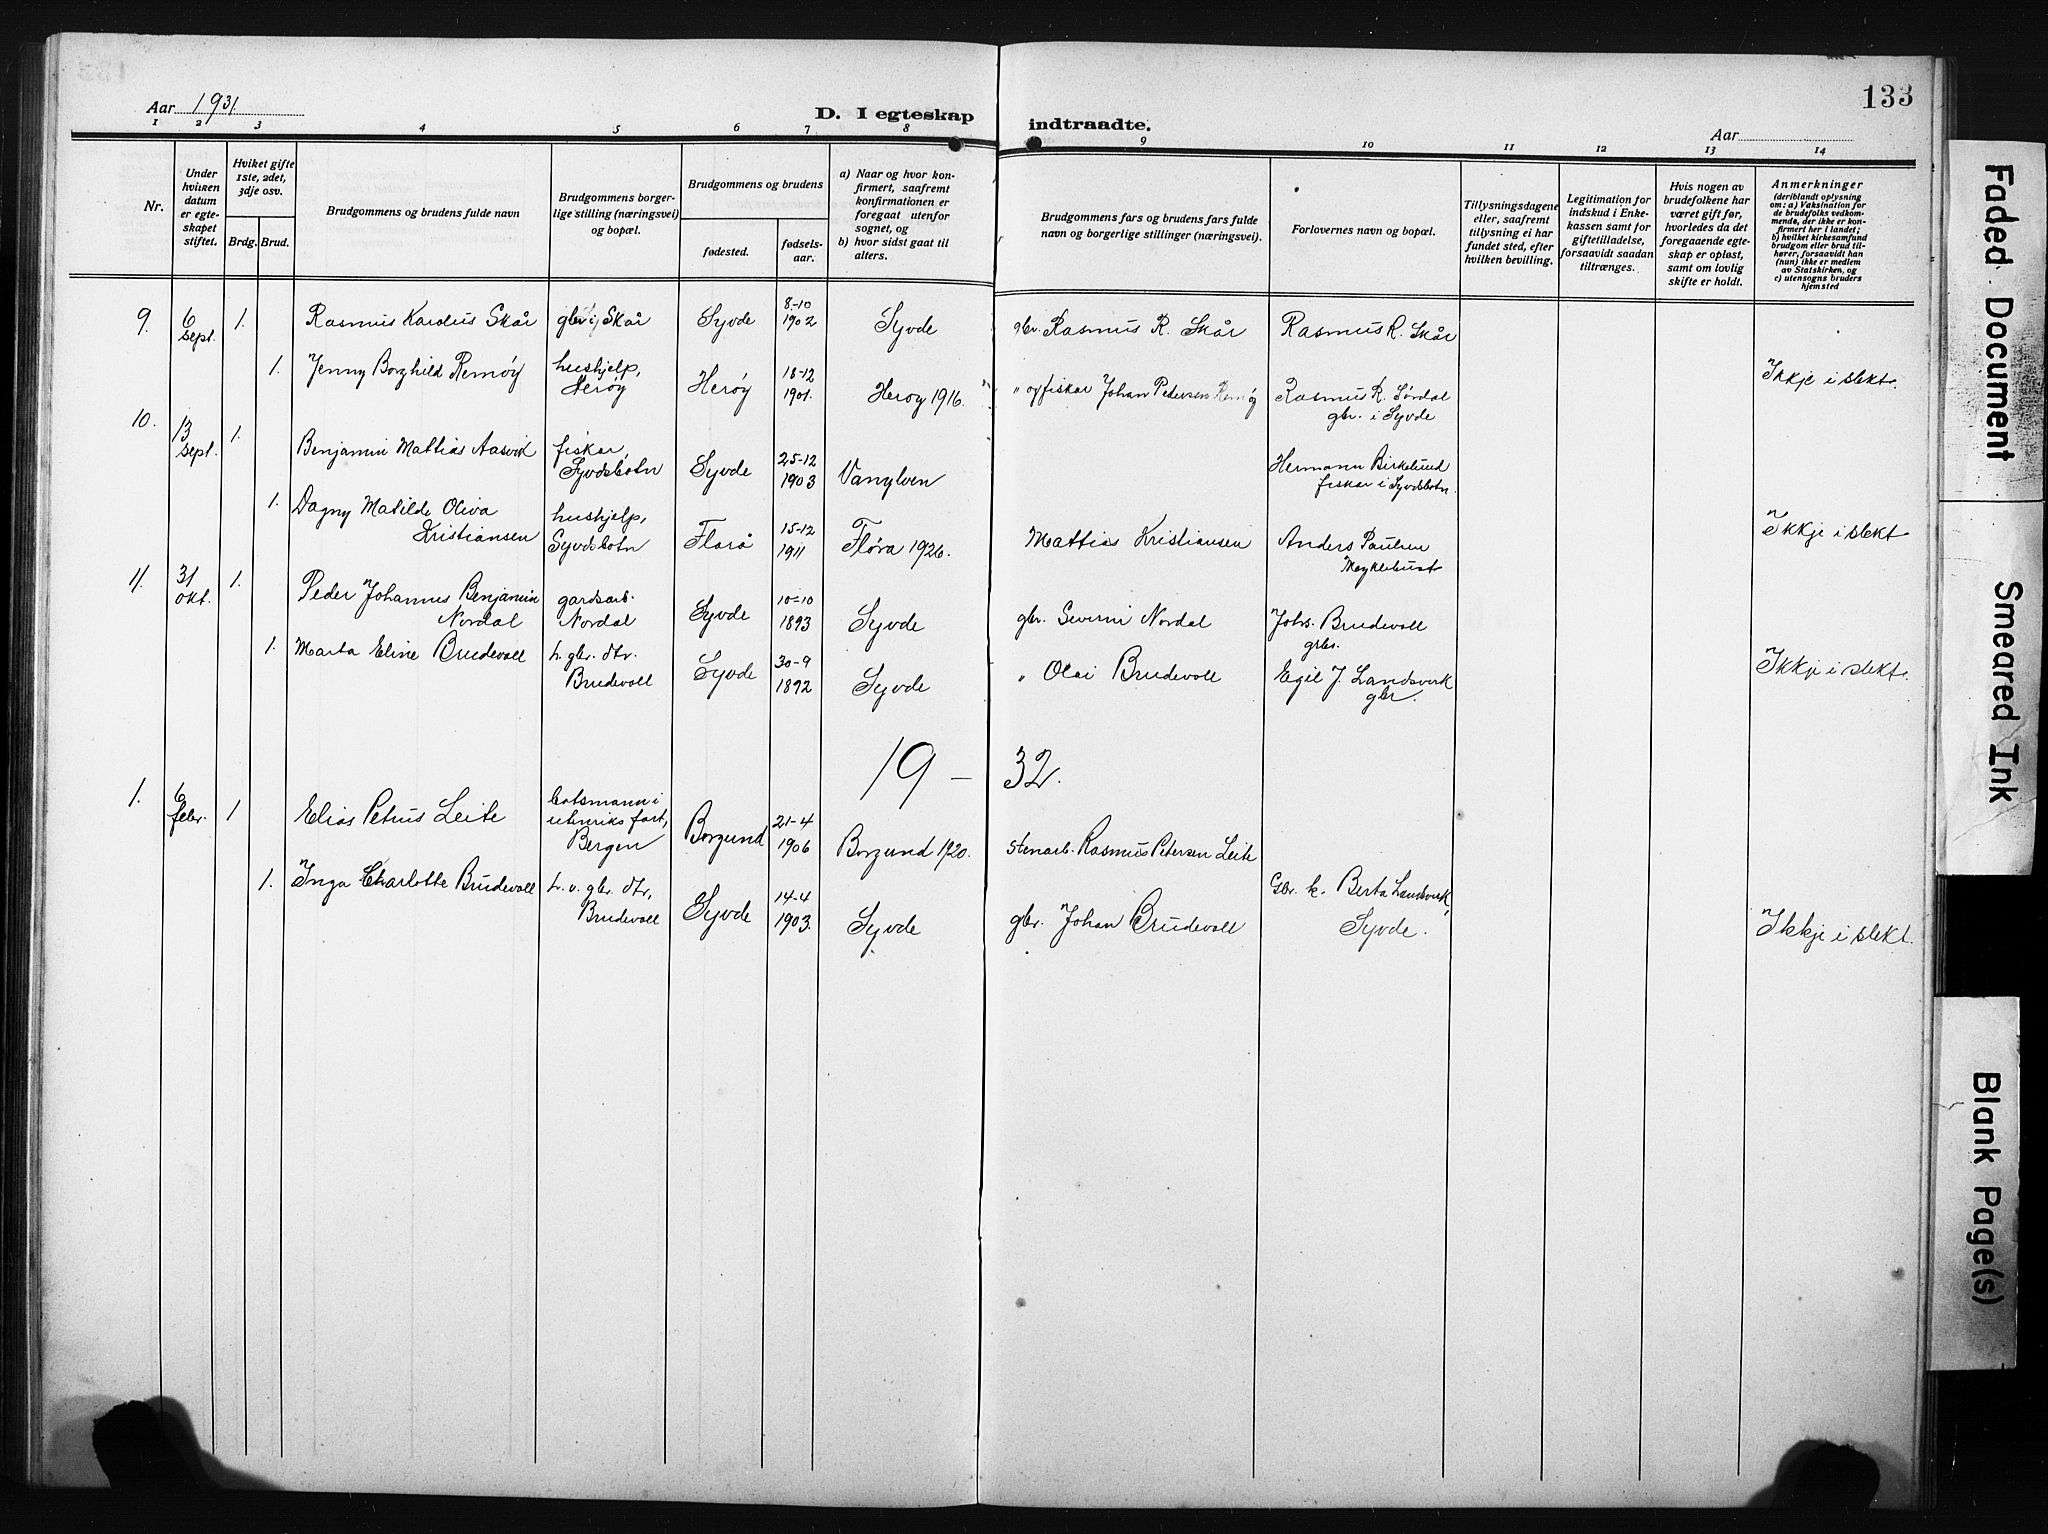 133
Aar 1931.
D. I egteskap indtraadte.
Aar
1 2 3 4 5 6 7 8 9 10 11 12 13 14
Nr.
Under hvilken datum er egteskapet stiftet.
Hvilket gifte 1ste, 2det, 3dje osv.
Brdg. Brud.
Brudgommens og brudens fulde navn
Brudgommens borgerlige stilling (næringsvei) og bopæl.
Brudgommens og brudens
fødested.
fødselsaar.
a) Naar og hvor konfirmert, saafremt konfirmationen er foregaat utenfor sognet, og
b) hvor sidst gaat til alters.
Brudgommens fars og brudens fars fulde navn og borgerlige stillinger (næringsvei).
Forlovernes navn og bopæl.
Tillysningsdagene eller, saafremt tillysning ei har fundet sted, efter hvilken bevilling.
Legitimation for indskud i Enkekassen samt for giftetilladelse, forsaavidt saadan tiltrænges.
Hvis nogen av brudefolkene har været gift før, hvorledes da det foregaaende egteskap er opløst, samt om lovlig skifte er holdt.
Anmerkninger (deriblandt oplysning om: a) Vaksination for de brudefolks vedkommende, der ikke er konfirmert her i landet; b) hvilket kirkesamfund brudgom eller brud tilhører, forsaavidt han (hun) ikke er medlem av Statskirken, og c) utensogns bruders hjemsted
9. 6 sept. 1. Rasmus Karolus Skår gbr. i Skår Syvde 8-10 1902 Syvde gbr. Rasmus R. Skår Rasmus R. Skår
1. Jenny Borghild Remøy hushjelp, Herøy Herøy 18-12 1901. Herøy 1916. " og fiskar Johan Pedersen Remøy Rasmus R. Sørdal gbr. i Syvde Ikkje i slekt.
10. 13 sept. 1. Benjamin Mattias Aasvik fiskar, Syvdsbotn Syvde 25-12 1903 Vanylven Hermann Birkelund fiskar i Syvdsbotn.
1. Dagny Matilde Oliva Kristiansen hushjelp, Syvdsbotn Florø 15-12 1911 Florø 1926. Mattias Kristiansen Anders Paulsen Myklebust Ikkje i slekt
11. 31 okt. 1. Peder Johannes Benjamin Nordal gardsarb. Nordal Syvde 10-10 1893 Syvde gbr. Severin Nordal Johs. Brudevoll gbr.
1. Marta Eline Brudevoll h. gbr. dtr. Brudevoll Syvde 30-9 1892 Syvde " Olai Brudevoll Egil J Landsverk gbr. Ikkje i slekt.
19 - 32.
1. 6 febr. 1 Elias Petrus Leite botsmann i utenriks fart, Bergen Borgund 21-4 1906 Borgund 1920. Stenarb. Rasmus Petersen Leite
1. Inga Charlotte Brudevoll h. v. gbr. dtr, Brudevoll Syvde 14-4 1903. Syvde gbr. Johan Brudevoll Gbr. k. Berta Landsverk, Syvde. Ikkje i slekt.
Faded Document
Smeared Ink
Blank Page(s)